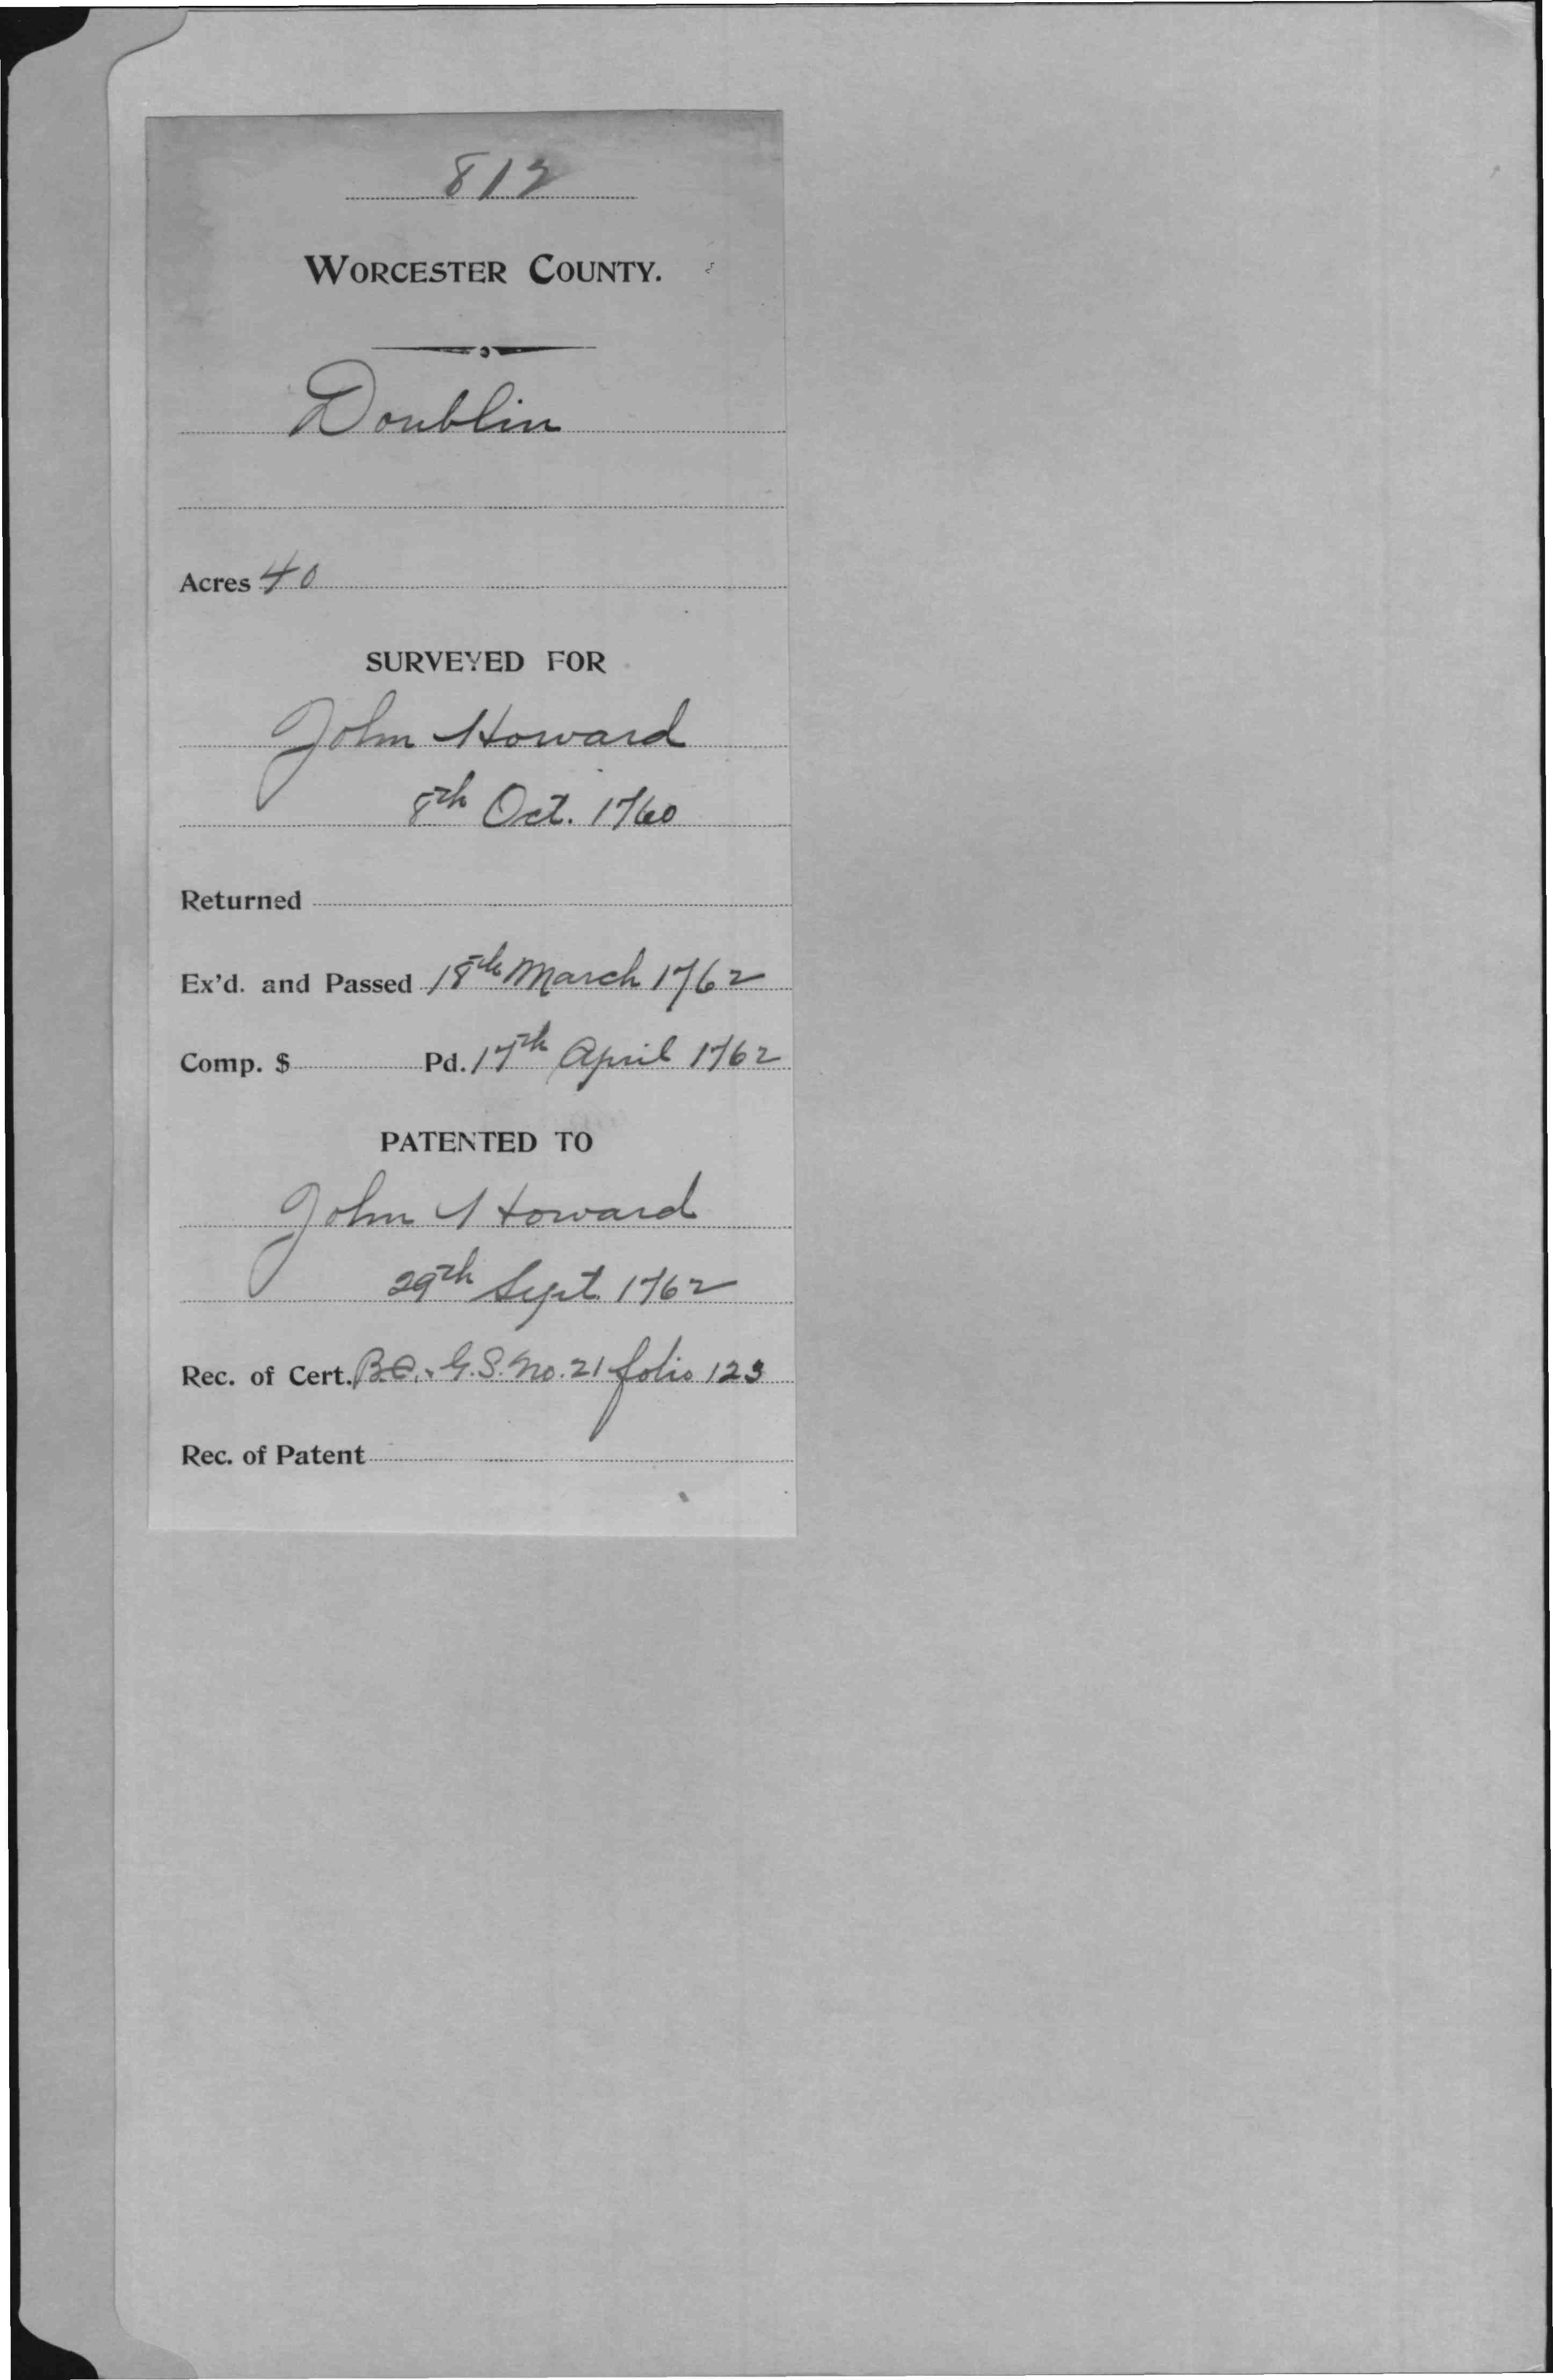 812
WORCESTER COUNTY.
Doublin
Acres 40
SURVEYED FOR
John Howard
8th Oct. 1760
Returned
Ex'd. and Passed 18th March 1762
Comp. $ Pd. 17th April 1762
PATENTED TO
John Howard
29th Sept. 1762
Rec. of Cert. B.C. & G.S. No. 21 folio 123
Rec. of Patent